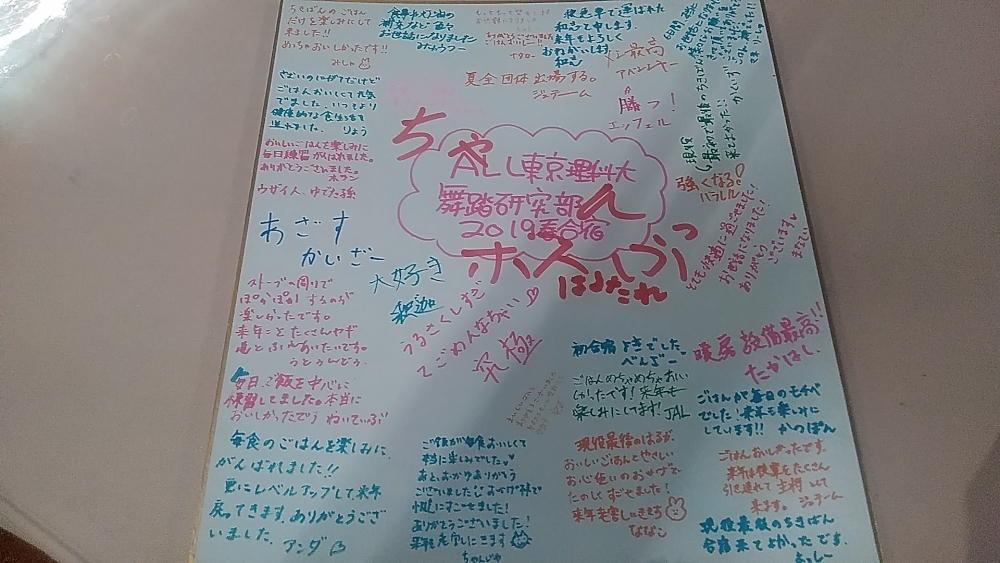 ちきばんのごはん
だけを楽しみにして
来ました!!
めちゃおいしかったです!!
みしゃ
食事や灯油の
補充など色々
お世話になりました
みょうつー
救急車で運ばれた
和志で申します
来年もよろしく
おねがいします
和志
メシ最高
アベンジャー
夏全団体出場する。
ジュテーム
勝つ!
エッフェル
さむいのにがてだけど
ごはんおいしくて元気
でました。いつもより
健康的な食生活を
送れました。りょう
おいしいごはんを楽しみに
毎日練習がんばれました。
ありがとうございました。
ホラン
ウザイ人、ゆでたる孫
ちゃんホスぶっ
はよみたれ
ALL東京理科大
舞踏研究部
2019春合宿
現役
最初で最後のちきばん
来てよかった!!
かくいず
強くなる!
ハラルル
とても快適に過ごせました!
お世話になりました!
ありがとう
ございます
まなてぃ
あざす
かいざー
大好き
釈迦
うるさくしすぎ
てごめんなちゃい
究極
ストーブの周りで
ぽかぽかするのが
楽しかったです。
来年こと たくさんヤギ
毎日、ご飯を中心に
練習してました。本当に
おいしかったでう ねいてぃぶ!
初合宿 よきでした。
べんぞー
ごはんめちゃめちゃおい
しかったです!来年も
楽しみにしてます!JAL
暖房設備最高!!
たかはし
ごはんが毎日のモチベ
でした!来年も楽しみに
しています!! かつぽん
毎食のごはんを楽しみに
がんばれました!!
更にレベルアップして、来年
戻ってきます。ありがとうござ
いました。アンダ
ご飯が毎食おいしくて
本当に楽しみでした
あと、おかゆありがとう
ございました!おかげ様で
快適にすごせました!
ありがとうございました!
来年老害しにきます
ちゃんじゃ
現役最後のはるが、
おいしいごはんとやさしい
お心使いのおかげで
たのしくすごせました!
来年老害しにきます
ななこ
ごはんおいしかったです。
来年は後輩をたくさん
引き連れて主将として
来ます。ジュテーム
現役最後のちきばん
合宿来てよかったです。
よっしー